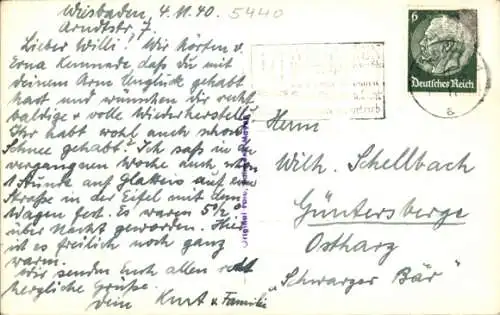 Wiesbaden, 4.11.40.
5440
Arndtstr. 7.
Lieber Willi! Wir hörten v.
Erna Kemnade daß du mit
deinem Arm Unglück gehabt
hast und wünschen dir recht
baldige & volle Wiederherstell.
Ihr habt wohl auch schon
Schnee gehabt? Ich saß in der
vergangenen Woche auch schon
1 Stunde auf Glatteis auf einer
Straße in der Eifel mit dem
Wagen fest. Es waren 5½°
über Nacht geworden. Hier
ist es freilich noch ganz
warm.
Wir senden Euch allen recht
herzliche Grüße.
Dein Kurt & Familie
6
Deutsches Reich
a
Herrn
Wilh. Schellbach
Güntersberge
Ostharz
"Schwarzer Bär"
Original